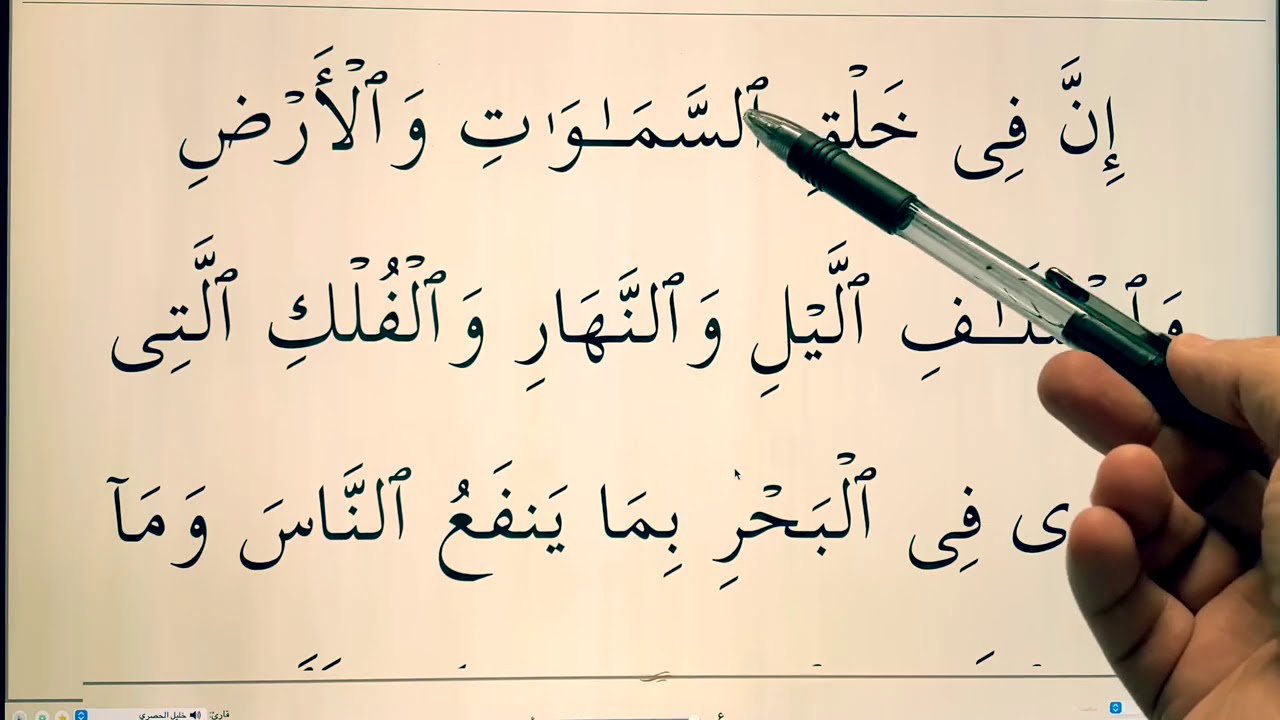 إِنَّ فِى خَلْقِ ٱلسَّمَـٰوَٰتِ وَٱلْأَرْضِ
ٱلَّيْلِ وَٱلنَّهَارِ وَٱلْفُلْكِ ٱلَّتِى
فِى ٱلْبَحْرِ بِمَا يَنفَعُ ٱلنَّاسَ وَمَآ
قارئ: خليل الحصري